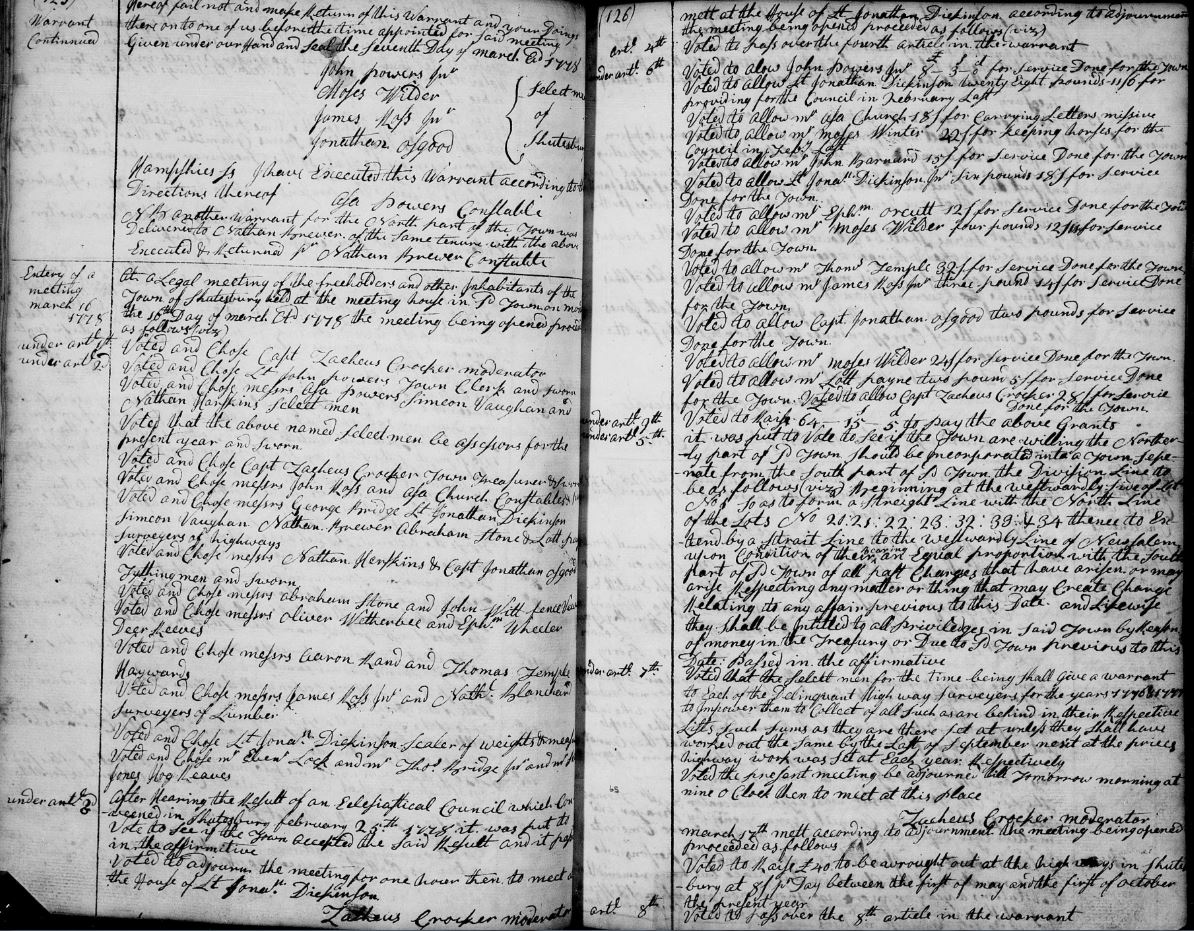 (125)
Warrant
Continued
hereof fail not and make Return of this Warrant and your Doings
there on to one of us before the time appointed for said meeting
Given under our Hand and Seal the Seventh Day of march AD 1778
John Powers Jnr
Moses Wilder
James Ross Jnr
Jonathan Osgood
Select men
of
Shutesbury
Hampshies Ss I have Executed this Warrant according to the
Directions thereof
Asa Powers Constable
NB another Warrant for the North part of the Town was
Delivered to Nathan Brewer of the Same tenure with the above
Executed & Returned pr Nathan Brewer Constable
Entery of a
meeting
march 16
1778
At a Legal meeting of the freeholders and other Inhabitants of the
Town of Shutesbury held at the meeting house in sd Town on
the 16th Day of march AD 1778 the meeting being opened
as follows (viz)
under artl 1st
Voted and Chose Capt Zacheus Crocker moderator
under artl 2d
Voted and Chose Lt John Powers Town Clerk and sworn
Voted and Chose messrs Asa Powers Simeon Vaughan and
Nathan Harskins Select men
Voted that the above named Select men be assessors for the
present year and sworn
Voted and Chose Capt Zacheus Crocker Town Treasurer &
Voted and Chose messrs John Ross and Asa Church Constables
Voted and Chose messrs George Bridge Lt Jonathan Dickinson
Simeon Vaughan Nathan Brewer Abraham Stone & Lott
surveyers of highways
Voted and Chose messrs Nathan Herskins & Capt Jonathan Osgood
Tything men and sworn
Voted and Chose messrs abraham Stone and John Witt fence
Voted and Chose messrs Oliver Witherbee and Ephm Wheeler
Deer Reeves
Voted and Chose messrs Aaron Rand and Thomas Temple
Haywards
Voted and Chose messrs James Ross Jnr and Nathl Blanchard
Surveyers of Lumber
Voted and Chose Lt Jonan Dickinson sealer of weights &
Voted and Chose mr Eben Lock and mr Thos Bridge Jnr and mr
Jones Hog Reaves
under artl 3
After Hearing the Result of an Eclesiastical Council which Con
veened in Shutesbury february 25th 1778 it was put to
Vote to See if the Town accepted the Said Result and it
in the affirmitive
Voted to adjourn the meeting for one hour then to meet at
the House of Lt Jonan Dickinson
Zacheus Crocker moderator
(126)
mett at the House of Lt Jonathan Dickinson according to adjournment
the meeting being opened proceded as follows (viz)
artl 4th
Voted to pass over the fourth article in the warrant
under artl 6th
Voted to alow John Powers Jnr for service Done for the Town
Voted to allow Lt Jonathan Dickinson twenty Eight pounds 11/6 for
providing for the Council in February Last
Voted to allow mr asa Church 18/ for Carrying Letters missive
Voted to allow mr moses Winter 22/ for keeping horses for the
Council in Feby Last
Voted to allow mr John Harnard 15/ for Service Done for the Town
Voted to allow Lt Jonan Dickinson Jnr six pounds 18/ for service
Done for the Town.
Voted to allow mr Ephm orcutt 12/ for Service Done for the Town
Voted to allow mr moses Wilder four pounds for service
Done for the Town.
Voted to allow mr Thoms Temple 32/ for service Done for the Town
Voted to allow mr James Ross Jnr three pound 14/ for Service Done
for the Town,
Voted to allow Capt Jonathan osgood two pounds for service
Done for the Town.
Voted to allow mr moses Wilder 24/ for Service Done for the Town.
Voted to allow mr Lott payne two pound 5/ for Service Done
for the Town. Voted to allow Capt Zacheus Crocker 28/ for service
Done for the Town.
under artl 9th
Voted to Raise 64 - 15 - 5 to pay the above Grants
under artl 5th.
it was put to Vote to See if the Town are willing the Norther-
-ly part of sd Town should be incorporated into a Town sepe-
-nate from the South part of sd Town, the Division Line to
be as follows (viz) Beginning at the westwardly Line of Lot
No 1 so as to form a Streight Line with the North Line
of the Lots No 20: 21: 22: 23: 32: 33: & 34 thence to Ex-
-tend by a Strait Line to the Westwardly Line of New Salem
upon Condition of their bearing an Equal proportion with the South
part of sd Town of all past Charges that have arisen or may
arise Respecting any matter or thing that may Create Charge
Relating to any affair previous to this Date and Likewise
they shall be Intitled to all Priviledges in said Town by Reason
of money in the Treasury or Due to sd Town previous to this
Date: passed in the affirmative
under artl 7th
Voted that the Select men for the time being shall Give a warrant
to Each of the Delinquant High way Surveyers for the years 1776 & 1777
to Impower them to Collect of all Such as are behind in their Respective
Lists Such Sums as they are there set at unless they shall have
worked out the Same by the Last of September next at the prices
highway work was set at Each year Respectively
Voted the present meeting be adjourned till Tomorrow morning at
nine o Clock then to meet at this place
Zacheus Crocker moderator
march 17th mett according to adjournment the meeting being opened
proceeded as follows
Voted to Raise £40 to be wrought out at the high ways in Shutes
-bury at 8/ pr Day between the first of may and the first of october
the present year
artl 8th
Voted to pass over the 8th article in the warrant